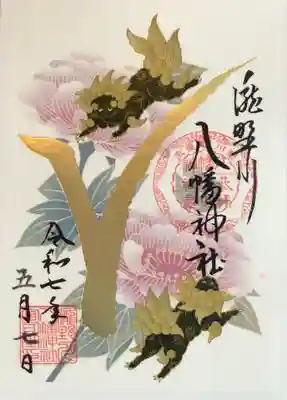 瀧野川
八幡神社
令和七年
五月廿日